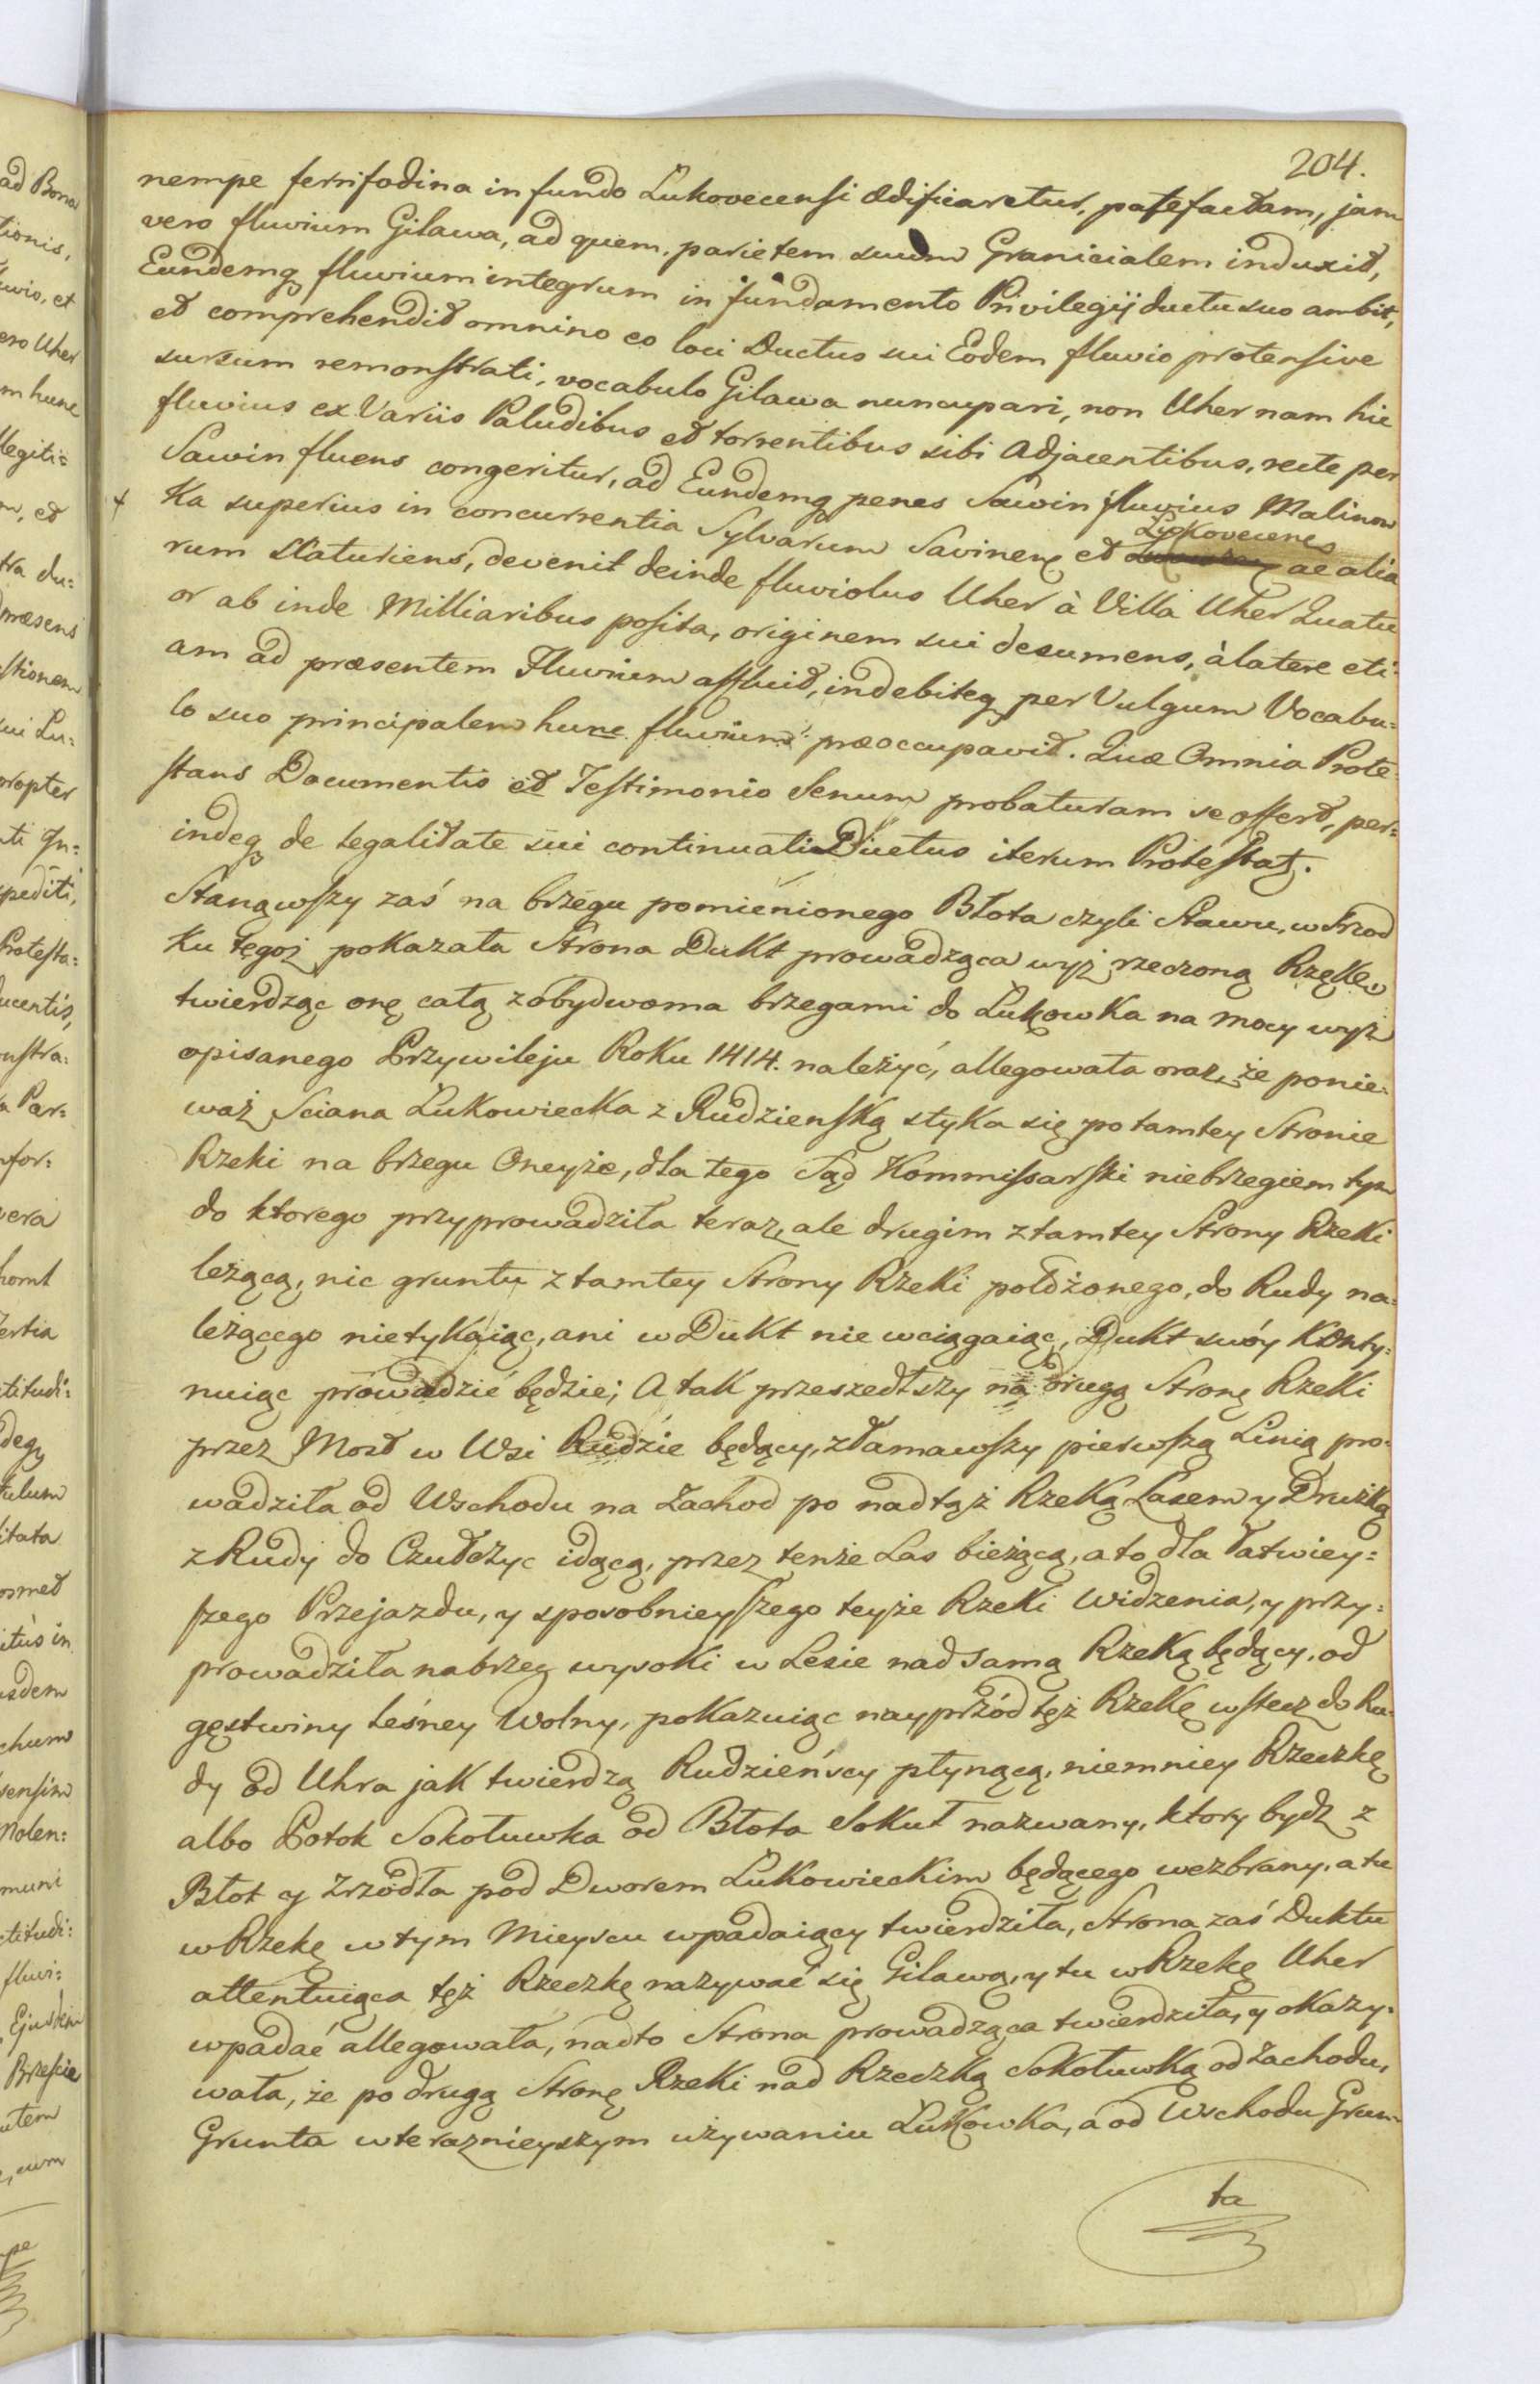 204.
nempe ferrifodina in fundo Lukovecensi ædificaretur, patefactam, jam
vero fluvium Gilawa, ad quem parietem suum Granicialem induxit,
Eundemq fluvium integrum in fundamento Privilegij ductu suo ambit,
et comprehendit omnino eo loci Ductus sui Eodem fluvio protensive
sursum remonstrati, vocabulo Gilawa nuncupari, non Uher nam hic
fluvius ex Variis Paludibus et torrentibus sibi Adjacentibus, recte per
Sawin fluens congeritur, ad Eundemq penes Sawin fluvius Malinow
ka superius in concurrentia Sylvarum Savinen et Lukovecens ac alia
rum staturiens, devenit deinde fluviolus Uher à Villa Uher Quatu
or ab inde Milliaribus posita, originem sui desumens, à latere eti-
am ad præsentem Fluvium affluit, indebiteq per Vulgum Vocabu-
lo suo principalem hunc fluvium præoccupavit. Quæ Omnia Prote-
stans Documentis et Testimonio Senum probaturam se offert, per-
indeq de legalitate sui continuati Ductus iterum Protestat.
Stanąwszy zaś na brzegu pomienionego Błota czyli Stawu, w srzod
ku tegoż pokazała Strona Dukt prowadząca wyż rzeczoną Rzękę,
twierdząc onę całą z obydwoma brzegami do Lukowka na mocy wyż
opisanego Przywileju Roku 1414. należyć, allegowała oraz, że ponie-
waż Sciana Lukowiecka z Rudzienską styka się po tamtey Stronie
Rzeki na brzegu Oneyże, dla tego Sąd Kommissarski nie brzegiem tym
do ktorego przyprowadziła teraz, ale drugim z tamtey Strony Rzeki
leżącą, nic gruntu z tamtey Strony Rzeki położonego, do Rudy na-
leżącego nietykaiąc, ani w Dukt nie wciągaiąc, Dukt swóy konty-
nuiąc prowadzić będzie; A tak przeszedłszy na drugą Stronę Rzeki
przez Most w Wsi Rudzie będący, złamawszy pierwszą Linią pro-
wadziła od Wschodu na Zachod po nad tąż Rzeką Lasem y Drużką
z Rudy do Czułczyc idącą, przez tenże Las bieżącą, a to dla łatwiey-
szego Przejazdu, y sposobnieyszego teyże Rzeki widzenia, y przy-
prowadziła na brzeg wysoki w Lesie nad samą Rzeką będący, od
gęstwiny leśney Wolny, pokazuiąc nayprzód tęż Rzekę wstecz do Ru-
dy od Uhra jak twierdzą Rudzieńscy płynącą, niemniey Rzeczkę
albo Potok Sokołuwka od Błota Sokuł nazwany, ktory bydz z
Błot y Zrzodła pod Dworem Lukowieckim będącego wezbrany, a tu
w Rzekę w tym Mieyscu wpadaiący twierdziła, Strona zaś Duktu
attentuiąca tęż Rzeczkę nazywać się Gilawą, y tu w Rzekę Uher
wpadać allegowała, nadto Strona prowadząca twierdziła, y okazy-
wała, że po drugą Stronę Rzeki nad Rzeczką Sokołuwką od Zachodu,
Grunta w teraznieyszym używaniu Lukowka, a od Wschodu Grun-
ta